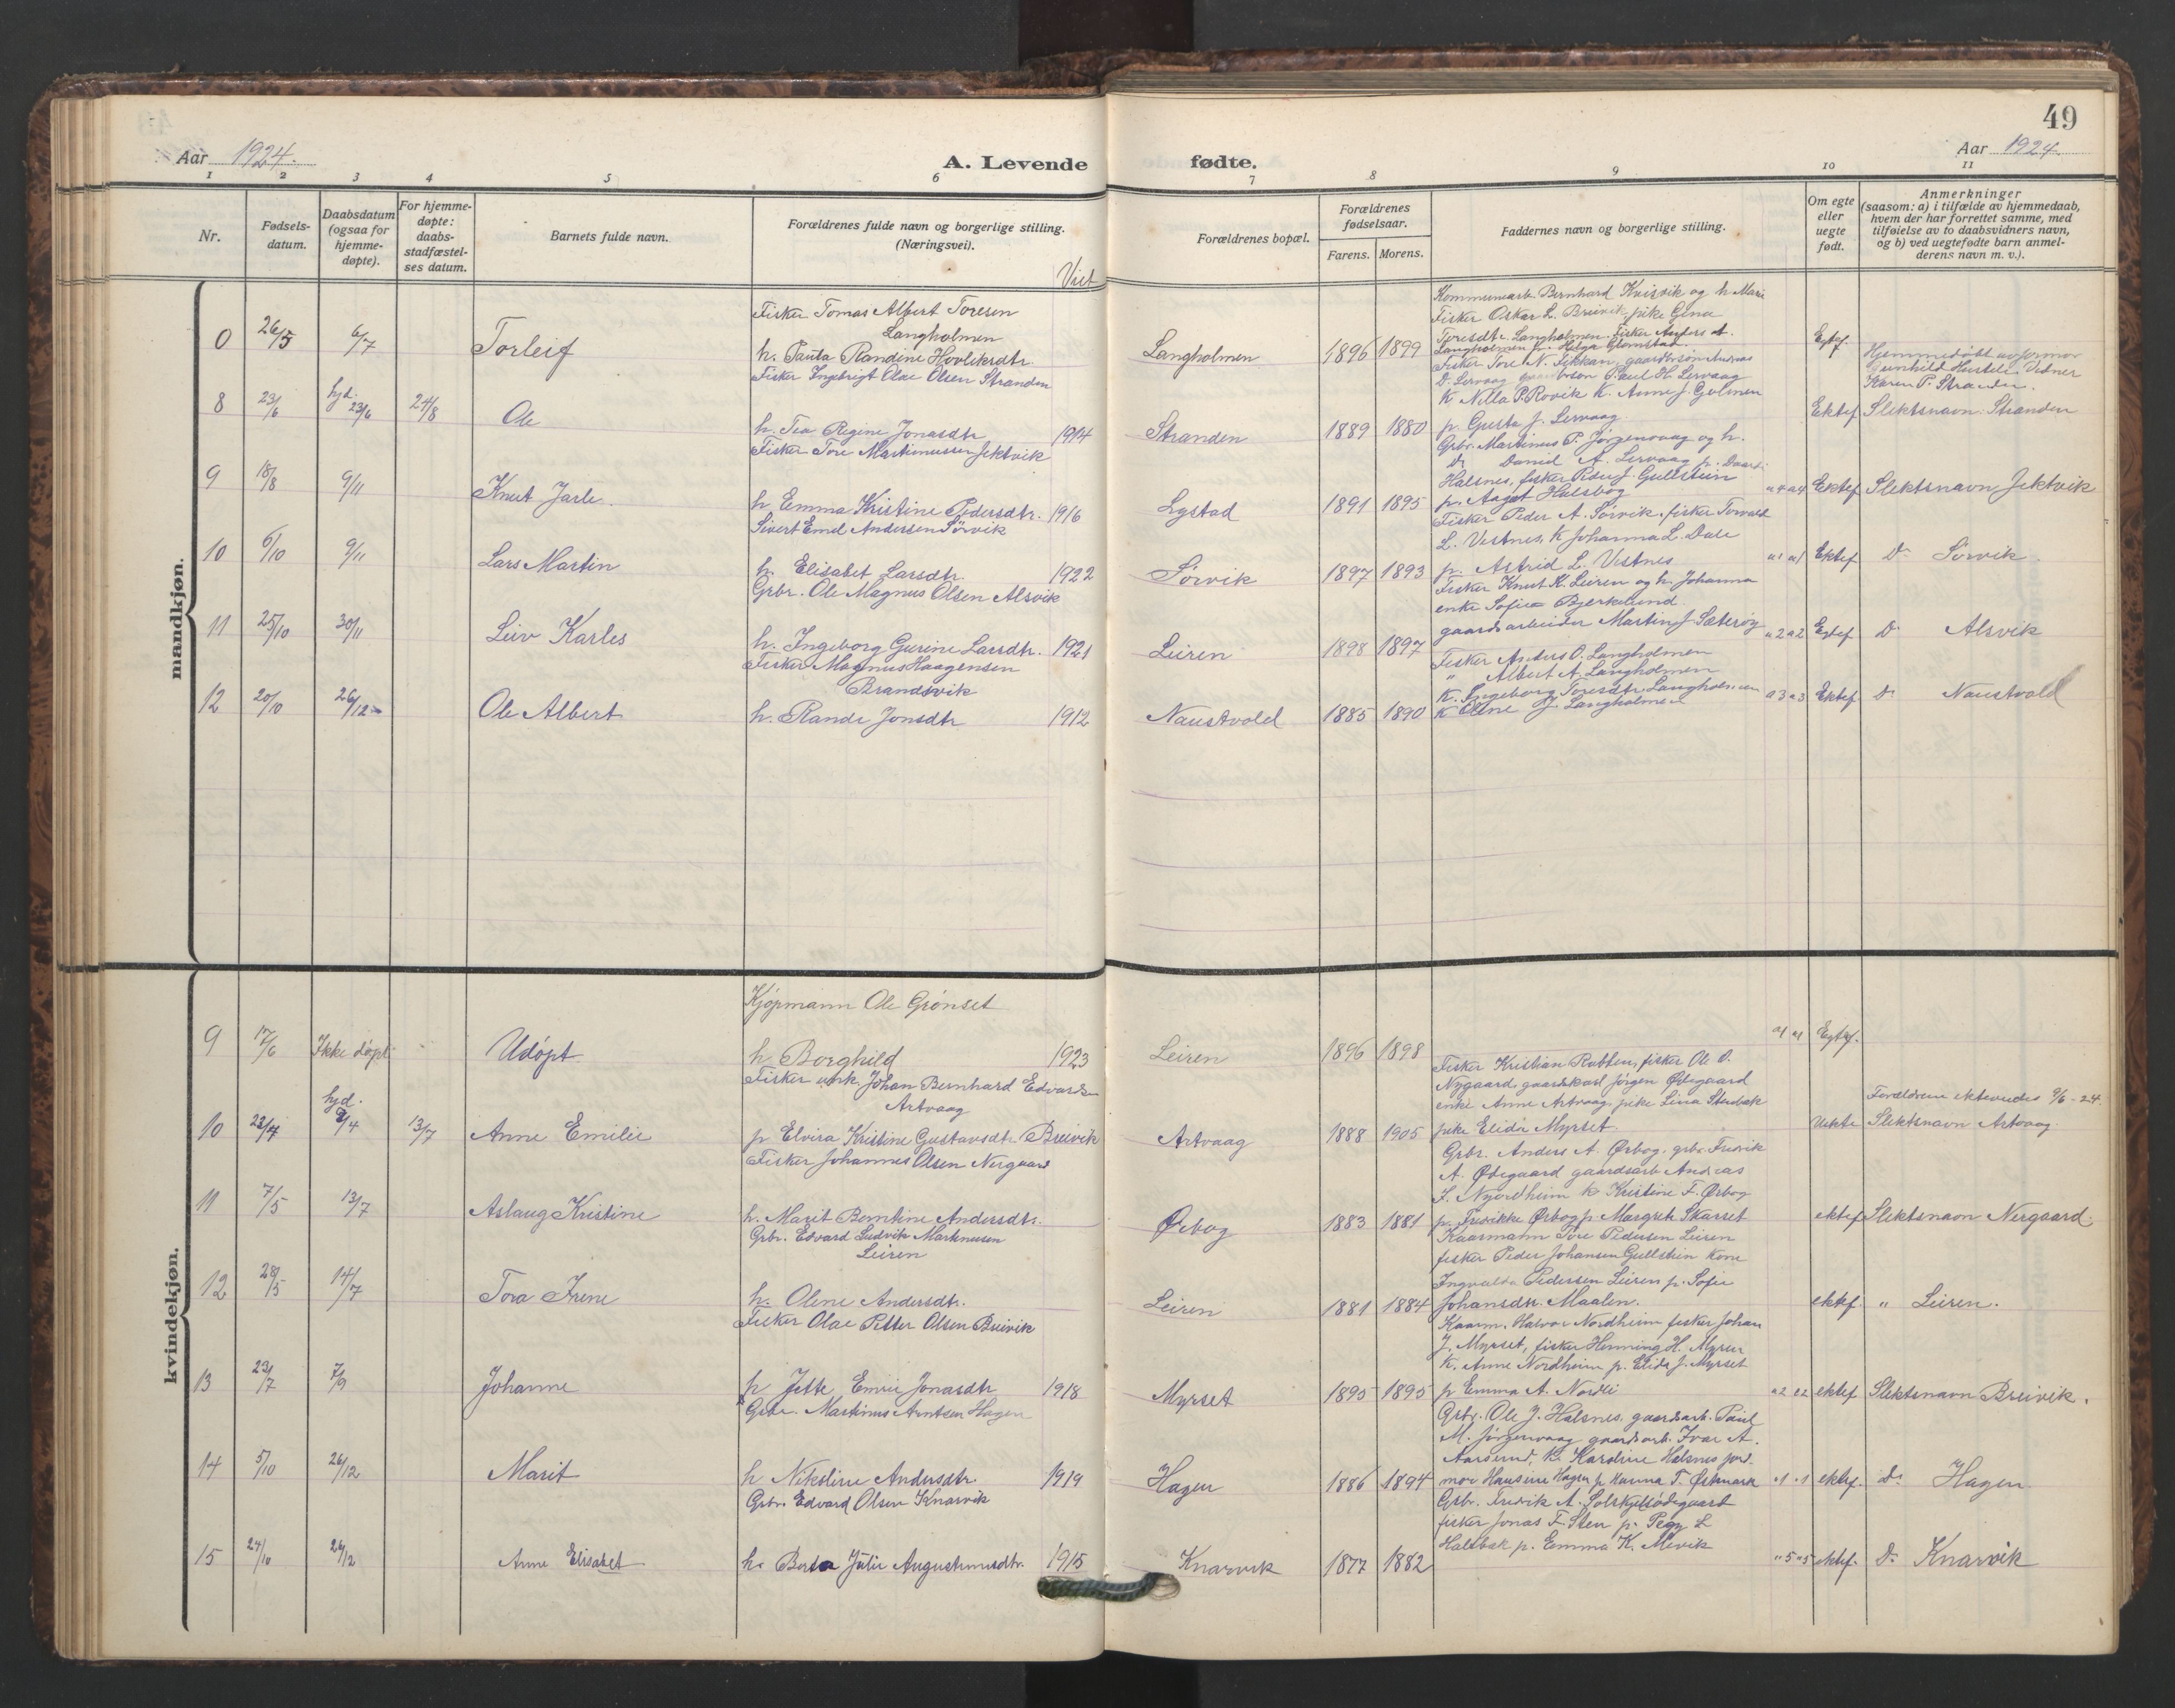 49
Aar 1924.
A. Levende fødte.
Aar 1924.
1 2 3 4 5 6 7 8 9 10 11
Nr.
Fødsels-
datum.
Daabsdatum
(ogsaa for
hjemme-
døpte).
For hjemme-
døpte:
daabs-
stadfæstel-
ses datum.
Barnets fulde navn.
Forældrenes fulde navn og borgerlige stilling.
(Næringsvei).
Viet
Forældrenes bopæl.
Forældrenes
fødselsaar.
Farens. Morens.
Faddernes navn og borgerlige stilling.
Om egte
eller
uegte
født.
Anmerkninger
(saasom: a) i tilfælde av hjemmedaab,
hvem der har forrettet samme, med
tilføielse av to daabsvidners navn,
og b) ved uegtefødte barn anmel-
derens navn m. v.).
mandkjøn.
0 26/5 6/7 Torleif
Fisker Tomas Albert Toresen
Langholmen
h. Paula Randine Hovleksdtr
Langholmen 1896 1899
Kommunearb. Bernhard Kvisvik og h. Marie
Fisker Oskar L. Breivik, pike Gina
Toresdtr. Langholmen. Fisker Anders A.
Langholmen p. Helga Glomstad.
Egtef.
8 23/6 hjd. 23/6 24/8 Ole
Fisker Ingebrigt Olai Olsen Stranden
h. Tea Regine Jonasdtr 1914
Stranden 1889 1880
Fisker Tore N. Tikkan, gaardbrsøn Andreas
D. Lervaag Paul H. Lervaag
K. Nilla P. Rovik K. Anne J. Gulmen
p. Gusta J. Lervaag
Ektef
Hjemmedøbt av jormor
Gunhild Hustele Vidner
Karen P. Stranden.
Slektsnavn: Stranden
9 18/8 9/11 Knut Jarle.
Fisker Tore Martinussen Jektvik
h. Emma Kristine Pedersdtr. 1916
Lystad 1891 1895
Grbr. Martinus P. Jørgenvaag og h.
Dr David A. Lervaag
Halsnes, fisker Peder J. Gullstein
p. Aagot Halsbog
a4 a4 Ektef Slektsnavn Jektvik
10 6/10 9/11 Lars Martin
Sivert Emil Andersen Sørvik
h. Elisabet Larsdtr. 1922
Sørvik 1897 1893
Fisker Peder A. Sørvik. fisker Torvald
L. Vestnes, K Johanna L. Dale
p. Astrid L. Vestnes
a1 a1 Ektef Do Sørvik
11 25/10 30/11 Leiv Karles
Grbr. Ole Magnus Olsen Alsvik
h. Ingeborg Gurine Larsdtr. 1921
Leiren 1898 1897
Fisker Knut K. Leiren og h. Johanna
enke Sofie Bjerkelund.
gaardsarbeider Martin J. Sæterøy
a2 a2 Egtef Do Alsvik
12 20/10 26/12 Ole Albert
Fisker Magnus Haagensen
Brandsvik
h. Randi Jonsdtr 1912
Naustvold 1885 1890
Fisker Anders O. Langholmen
" Albert A. Langholmen
K. Ingeborg Toresdtr. Langholmen
K Oline J. Langholmen
a3 a3 Ektef Do Naustvold
kvindekjøn.
9 17/6 Ikke døpt. Udøpt
Kjøpmann Ole Grønset
h. Borghild 1923
Leiren 1896 1898
a1 a1 Egtef.
10 22/4 hjd. 2/4 13/7 Anne Emilie
Fisker unk. Johan Bernhard Edvardsen
Artvaag
p Elvira Kristine Gustavsdtr Breivik
Artvaag 1888 1905
Fisker Kristian Rabben, fisker Ole O.
Nygaard, gaardskarl Jørgen Ødegaard
enke Anne Artvaag, pike Lina Stenbæk
pike Elida Myrset.
Uekte
Forældrene ektevidde 9/6-24.
Slektsnavn Artvaag.
11 7/5 13/7 Aslaug Kristine
Fisker Johannes Olsen Nergaard
h. Marit Berntine Andersdtr.
Ørbog 1883 1881
Grbr. Anders A. Ørbog. grbr. Fredrik
A. Ødegaard gaardsarb Andreas
S. Nyordheim k Kristine F. Ørbog
p. Fredrikke Ørbog p Margrete Skarset
ektef Slektsnavn Nergaard.
12 28/5 14/7 Tora Irene
Grbr. Edvard Ludvik Martinusen
Leiren
h. Oline Andersdtr.
Leiren 1881 1884
Kaarmann Tore Pedersen Leiren
fisker Peder Johansen Gullstein Kone
Ingvalda Pedersen Leiren p. Sofie
Johansdtr. Maalen.
ektef. " Leiren.
13 23/7 7/9 Johanne
Fisker Olae Petter Olsen Breivik
h Jette Emrie Jonasdtr 1918
Myrset 1895 1895
Kaarm. Halvor Nordheim fisker Johan
J. Myrset, fisker Henning H. Myren
K. Anne Nordheim p. Elida J. Myrset
p Emma A. Nordli
a2 a2 ektef Slektsnavn Breivik.
14 5/10 26/12 Marit
Grbr. Martinus Arntsen Hagen
h Nikoline Andersdtr. 1919
Hagen 1886 1894
Grbr. Ole J. Halsnes, gaardsarb. Paul
M. Jørgenvaag gaardsarb. Ivar A.
Aarsund, K. Karoline Halsnes jord
mor Hansine Hagen p Hanna T. Østmark
a1 a1 ektef. Do Hagen.
15 24/10 26/12 Anne Elisabet
Grbr. Edvard Olsen Knarvik
h. Berta Julie Augustinusdtr. 1915
Knarvik 1877 1882
Grbr. Fredrik A. Solskjelsødegaard
fisker Jonas F. Sten p. Pegy L
Halsbak p. Emma K. Mevik
a5 a5 ektef. Do Knarvik